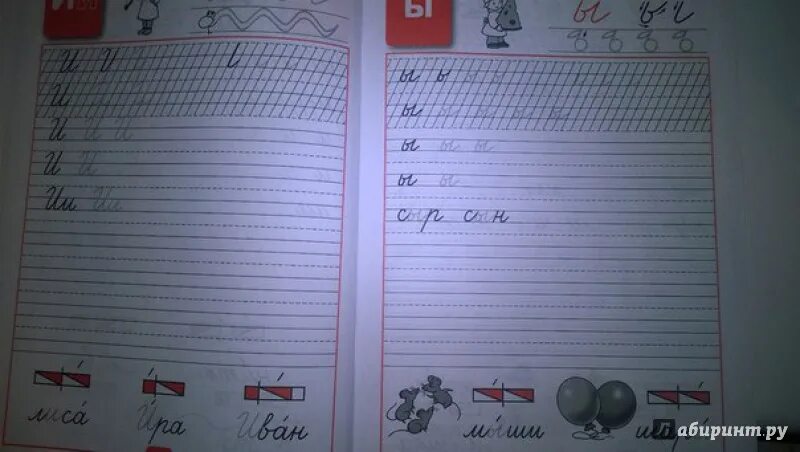 И и
И И И
И И И
И И
Ии Ии
лиса́ И́ра Ива́н
ы
ы ы ы ы
ы ы ы ы ы ы
ы ы ы
ы ы
сыр сын
мы́ши
Лабиринт.ру